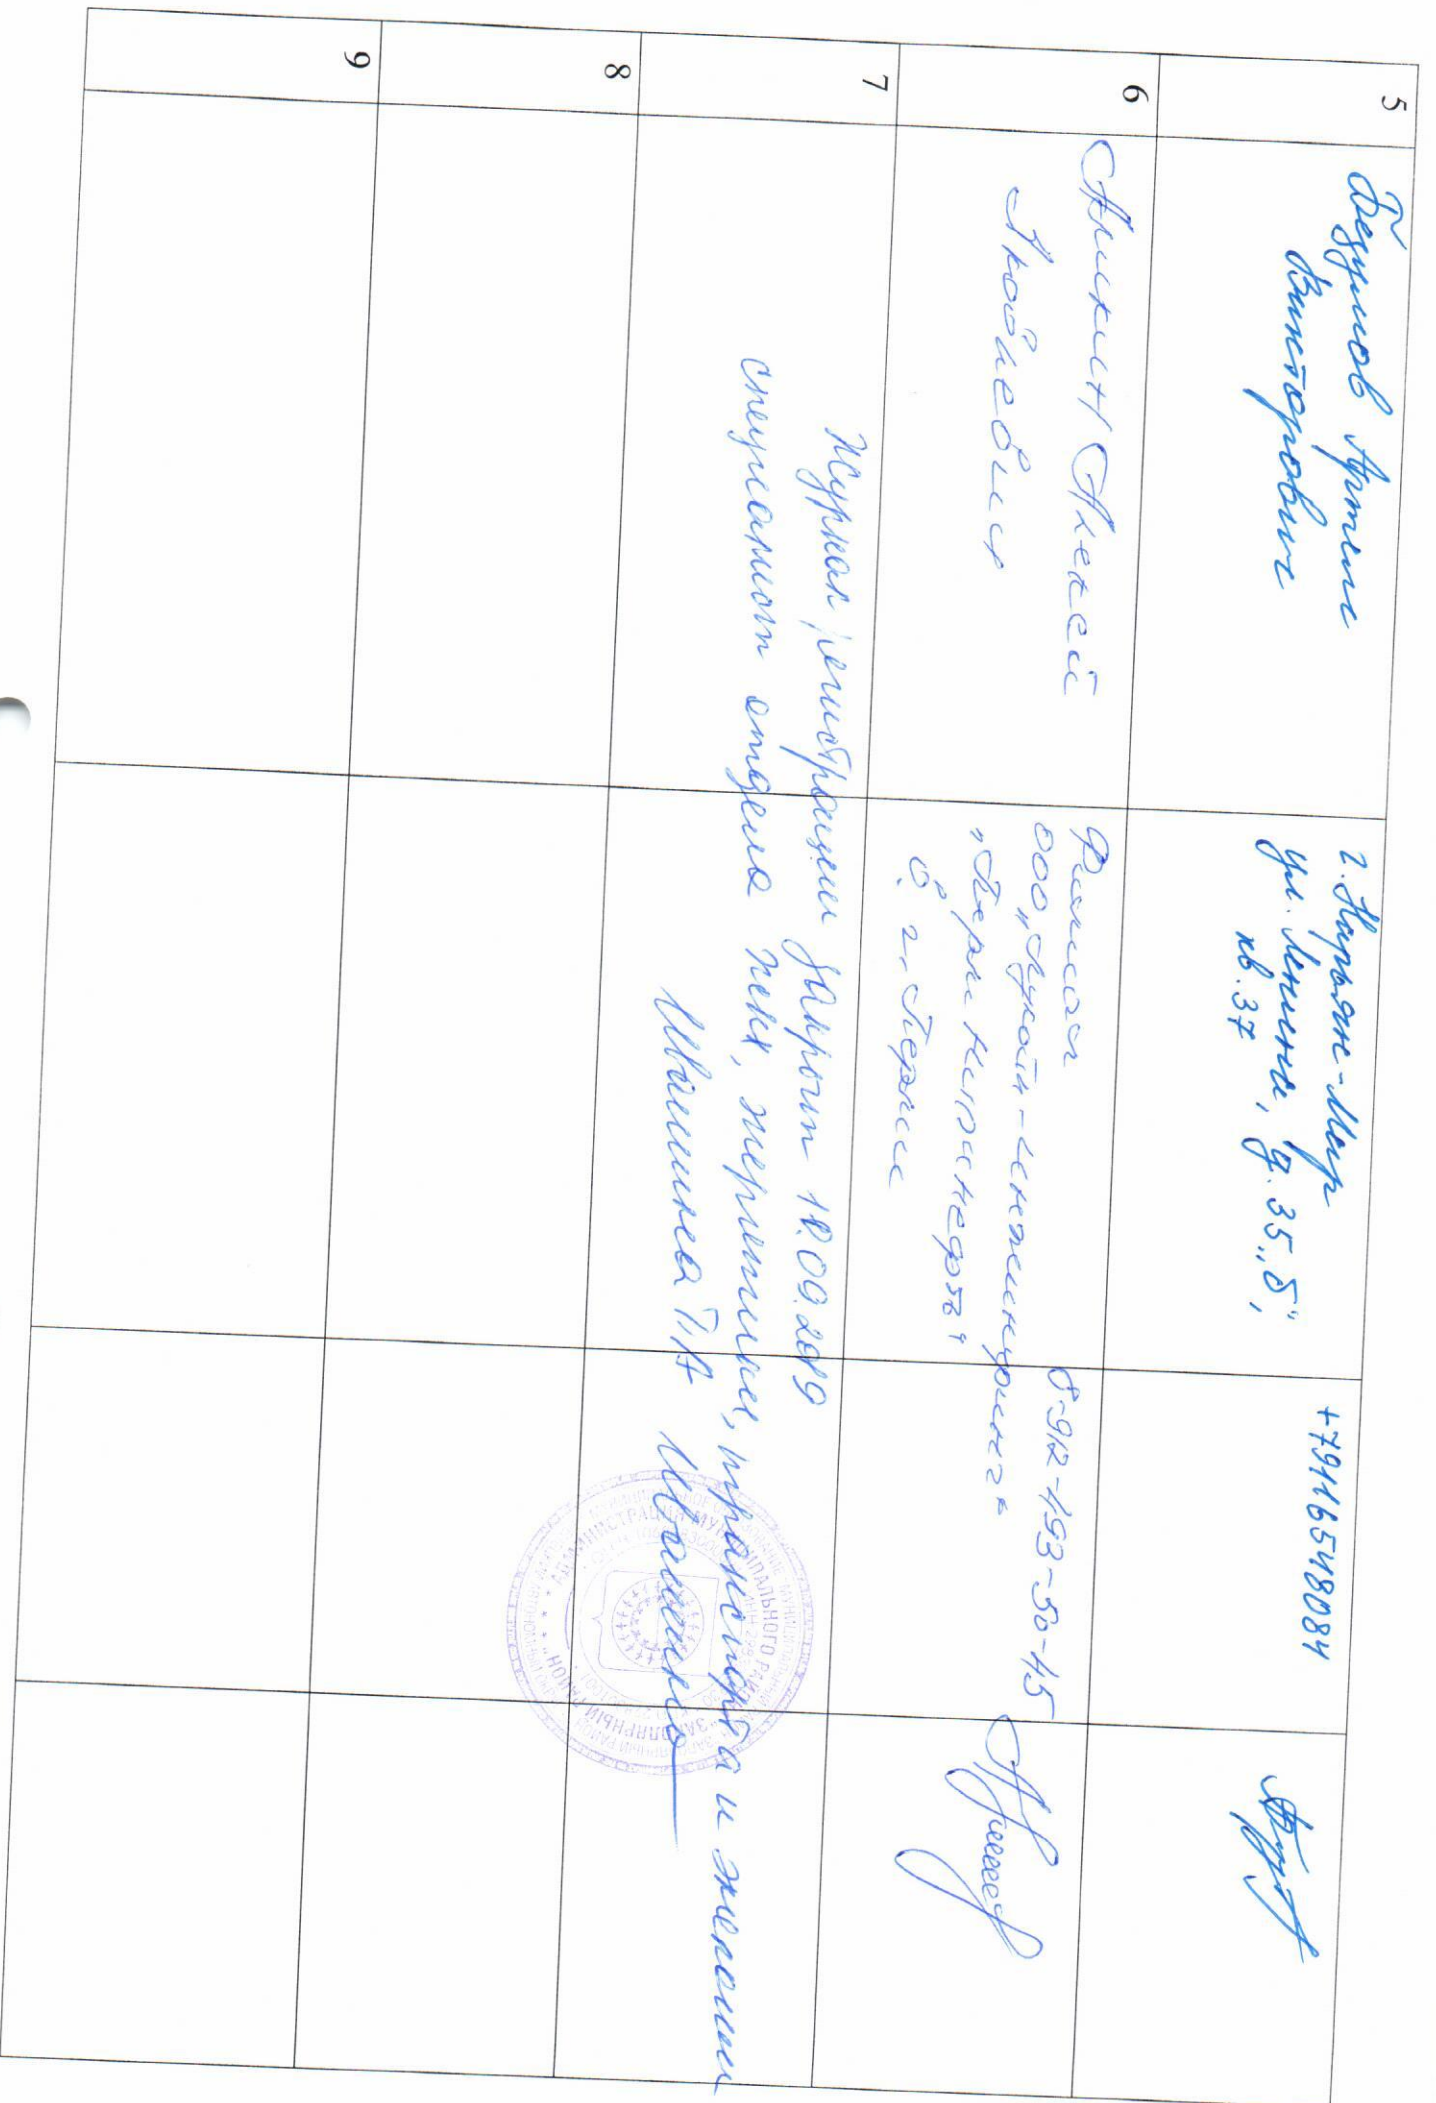 5
Безумов Артем
Викторович
г. Нарьян-Мар
ул. Ленина, д. 35 „Б",
кв. 37
+79116548084
6
Аникин Алексей
Филиал
ООО „Лукойл-Инжиниринг"
„ПермНИПИнефть"
в г. Перми
8-912-493-50-45
7
Журнал регистрации закрыт 10.09.2019
специалист отдела ЖКХ, энергетики, транспорта и экологии
Ивашина Т.А
8
9
АДМИНИСТРАЦИЯ МУНИЦИПАЛЬНОГО РАЙОНА "ЗАПОЛЯРНЫЙ РАЙОН"